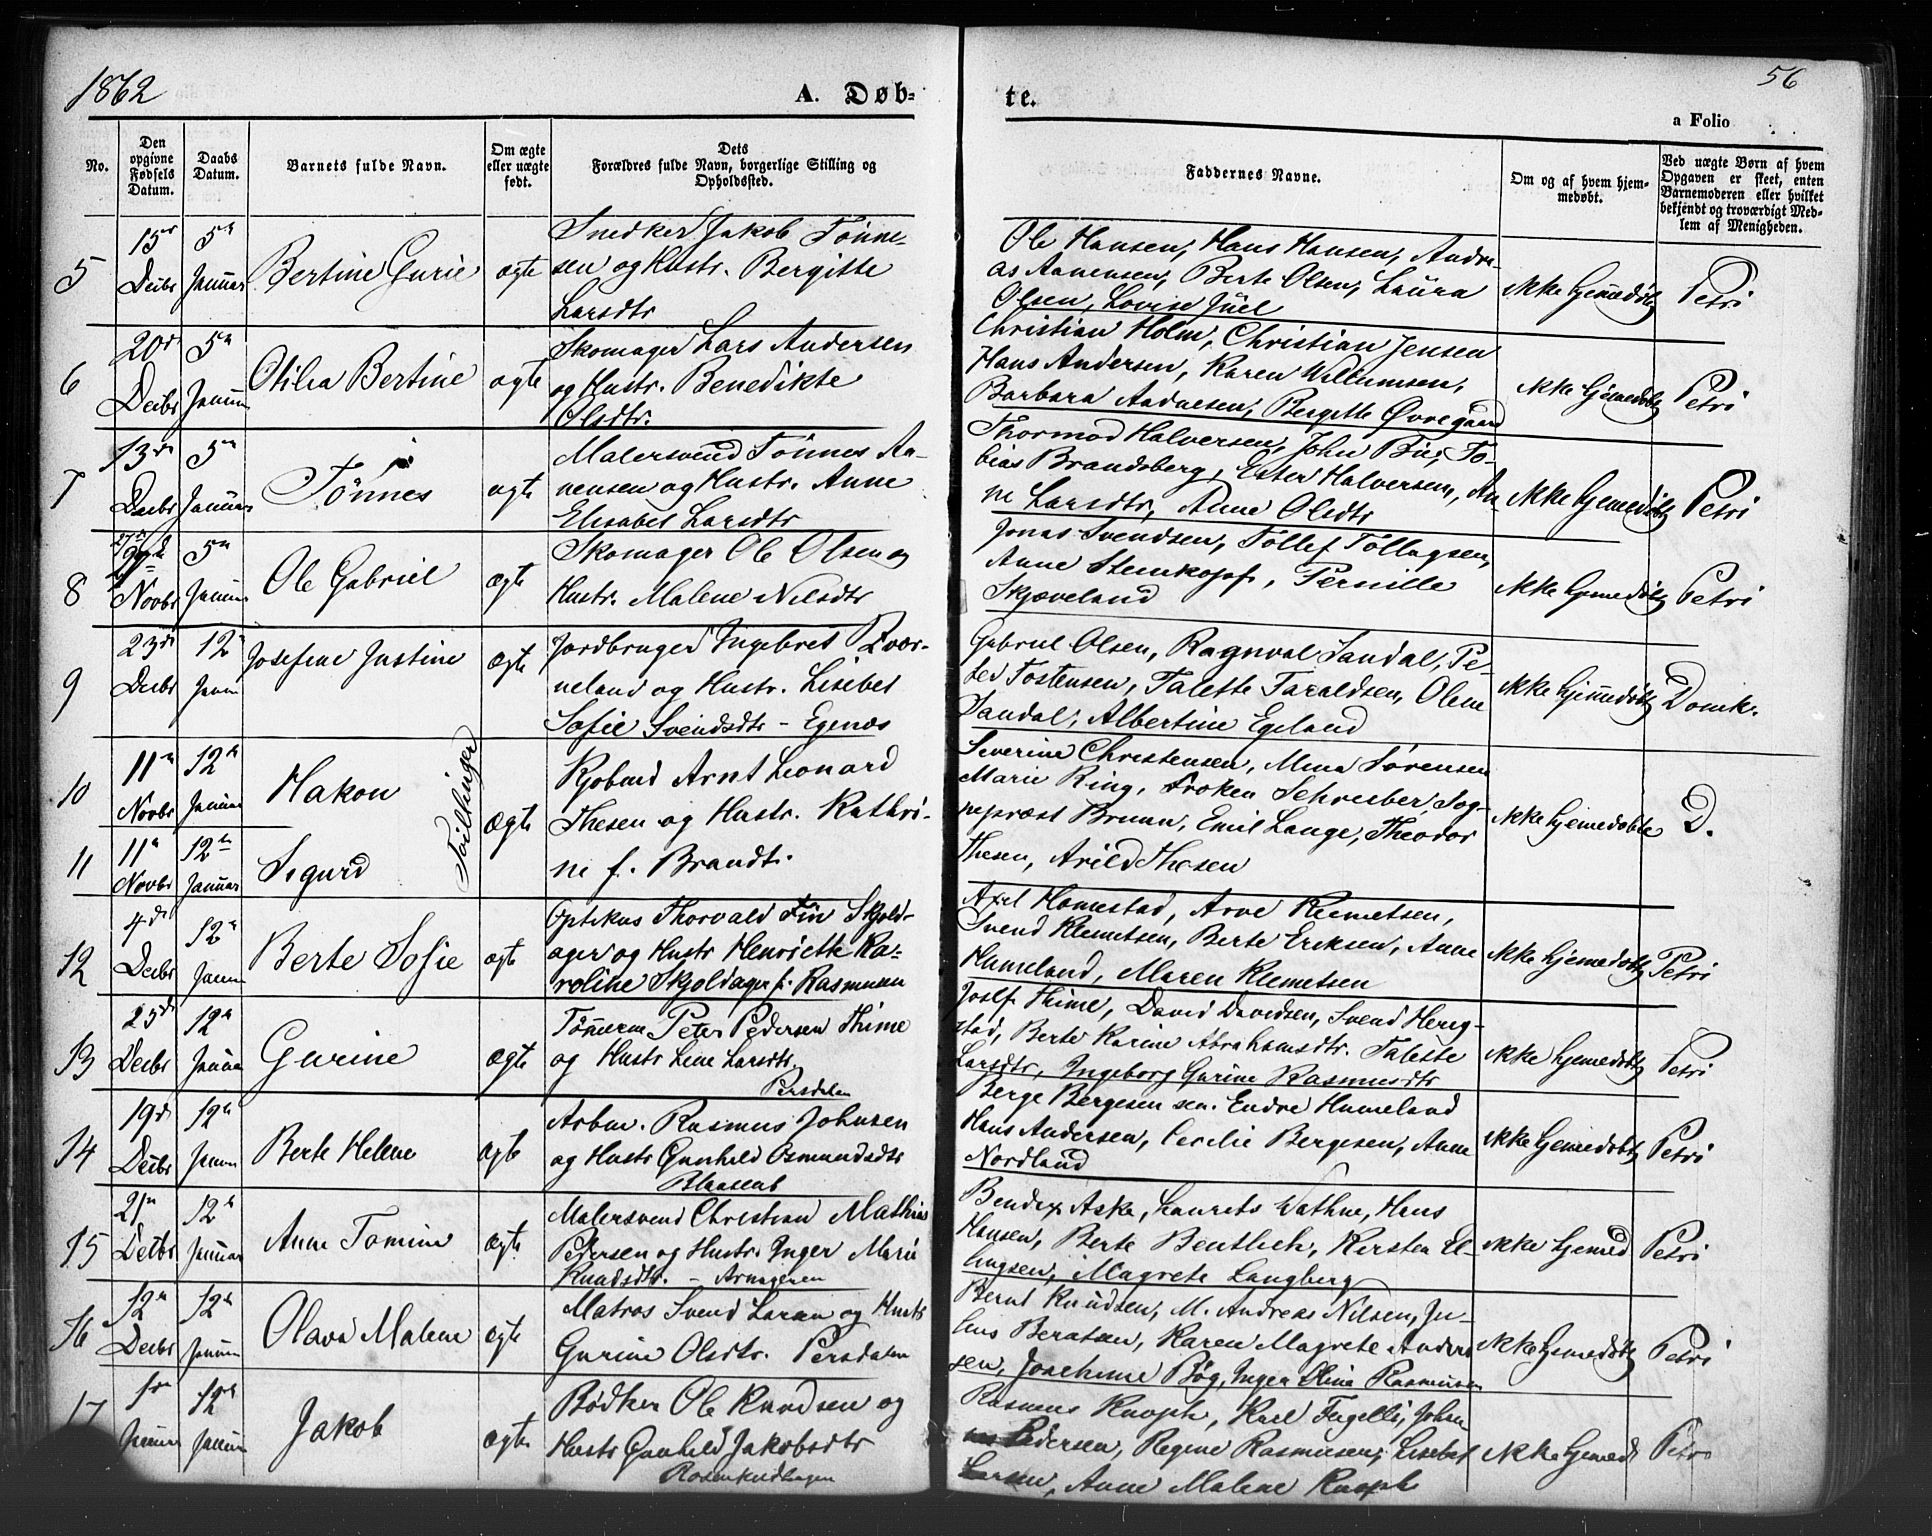 1862
A. Døb-
te.
56
a Folio
No.
Den opgivne Fødsels Datum.
Daabs Datum.
Barnets fulde Navn.
Om ægte eller uægte født.
Dets Forældres fulde Navn, borgerlige Stilling og Opholdssted.
Faddernes Navne.
Om og af hvem hjemmedøbt.
Ved uægte Børn af hvem Opgaven er skeet, enten Barnemoderen eller hvilket bekjendt og troværdigt Medlem af Menigheden.
5
15de Decbr
5te Januar
Bertine Gurie
ægte
Snedker Jakob Tønne-
sen og Hustr. Bergitte
Larsdtr
Ole Hansen, Hans Hansen, Andre-
as Aanensen, Berte Olsen, Laura
Olsen, Lovise Juel
Ikke hjemmedøbt
Petri
6
20de Decbr
5te Januar
Otilia Bertine
ægte
Skomager Lars Andersen
og Hustr. Benedikte
Olsdtr.
Christian Holm, Christian Jensen
Hans Andersen, Karen Willumsen,
Barbara Aadnesen, Bergitte Øvregaard
Ikke hjemedøbt
Petri
7
13de Decbr
5te Januar
Tönnes
ægte
Malersvend Tönnes Aa-
nensen og Hustr. Anne
Elisabet Larsdtr
Thormod Halversen, John Bie, To-
bias Brandsberg, Ester Halversen, An
ne Larsdtr, Anne Olsdtr
Ikke hjemedøbt
Petri
8
Novbr
5te Januar
Ole Gabriel
ægte
Skomager Ole Olsen og
Hustr. Malene Nilsdtr
Jonas Svendsen, Tollef Tollagsen,
Anne Stenkopf, Pernille
Skjæveland
Ikke hjemedøbt
Petri
9
23de Decbr
12te Januar
Josefine Justine
ægte
Jordbruger Ingebret Kvær-
neland og Hustr. Lisebet
Sofie Svendsdtr - Egenæs
Gabriel Olsen, Ragnval Sandal, Pe-
ter Tostensen, Talette Taraldsen, Olene
Sandal, Albertine Egeland
Ikke hjemmedøbt
Domk.
10
11te Novbr
12te Januar
Hakon
Tvillinger
ægte
Kjøbmd Arnt Leonard
Thesen og Hustr. Kathri-
ne f. Brandt.
Severine Christensen, Mina Sørensen
Marie Ring, Frøken Schreiber, Sog-
nepræst Bruun, Emil Lange, Theodor
Thesen, Arild Thesen
Ikke hjemedøbte
D.
11
11te Novbr
12te Januar
Sigurd
12
4de Decbr
12te Januar
Berte Sofie
ægte
Optikus Thorvald Fin Skjold-
ager og Hustr Henriette Ka-
roline Skjoldager f. Rasmusen
Axel Homestad, Arve Klemetsen,
Svend Klemetsen, Berte Eriksen, Anne
Humeland, Maren Klemetsen
Ikke hjemedøbt
Petri
13
25de Decbr
12te Januar
Gurine
ægte
Tömmerm Peter Pedersen Thime
og Hustr Lene Larsdtr.
Persdalen
Josef Thime, David Davidsen, Svend Herig-
stad, Berte Karine Abrahamsdtr. Talette
Larsdtr, Ingeborg Gurine Rasmusdtr
Ikke hjemedøbt
Petri
14
19de Decbr
12te Januar
Berte Helene
ægte
Arbm. Rasmus Johnsen
og Hustr Gunhild Osmundsdtr
Blaasent
Berge Bergesen sen. Endre Humeland
Hans Andersen, Cecilie Bergesen, Anne
Nordland
Ikke hjemedøbt
Petri
15
21de Decbr
12te Januar
Anne Tomine
ægte
Malersvend Christian Mathias
Pedersen og Hustr. Inger Marie
Knudsdtr. - Arnageren
Bendix Aske, Laurets Wathne, Hans
Hansen, Berte Bentlich, Kirsten El-
lingsen, Magrete Langberg
Ikke hjemed
Petri
16
12te Decbr
12te Januar
Olava Malene
ægte
Matros Svend Larsen og Hustr
Gurine Olsdtr. Persdalen
Bernt Knudsen, M. Andreas Nilsen, Ju-
lius Berntsen, Karen Magrete Ander
sen, Josephine Bøg, Inger Elina Rasmusen
Ikke hjemedøbt
Petri
17
1te Januar
12te Januar
Jakob
ægte
Bödker Ole Knudsen og
Hustr Gunhild Jakobsdtr
Rosenkildhagen
Rasmus Knoph, Karl Fugelli, Johan
Pedersen, Regine Rasmusen, Lisebet
Larsen, Anne Malene Knoph
Ikke hjemed
Petri